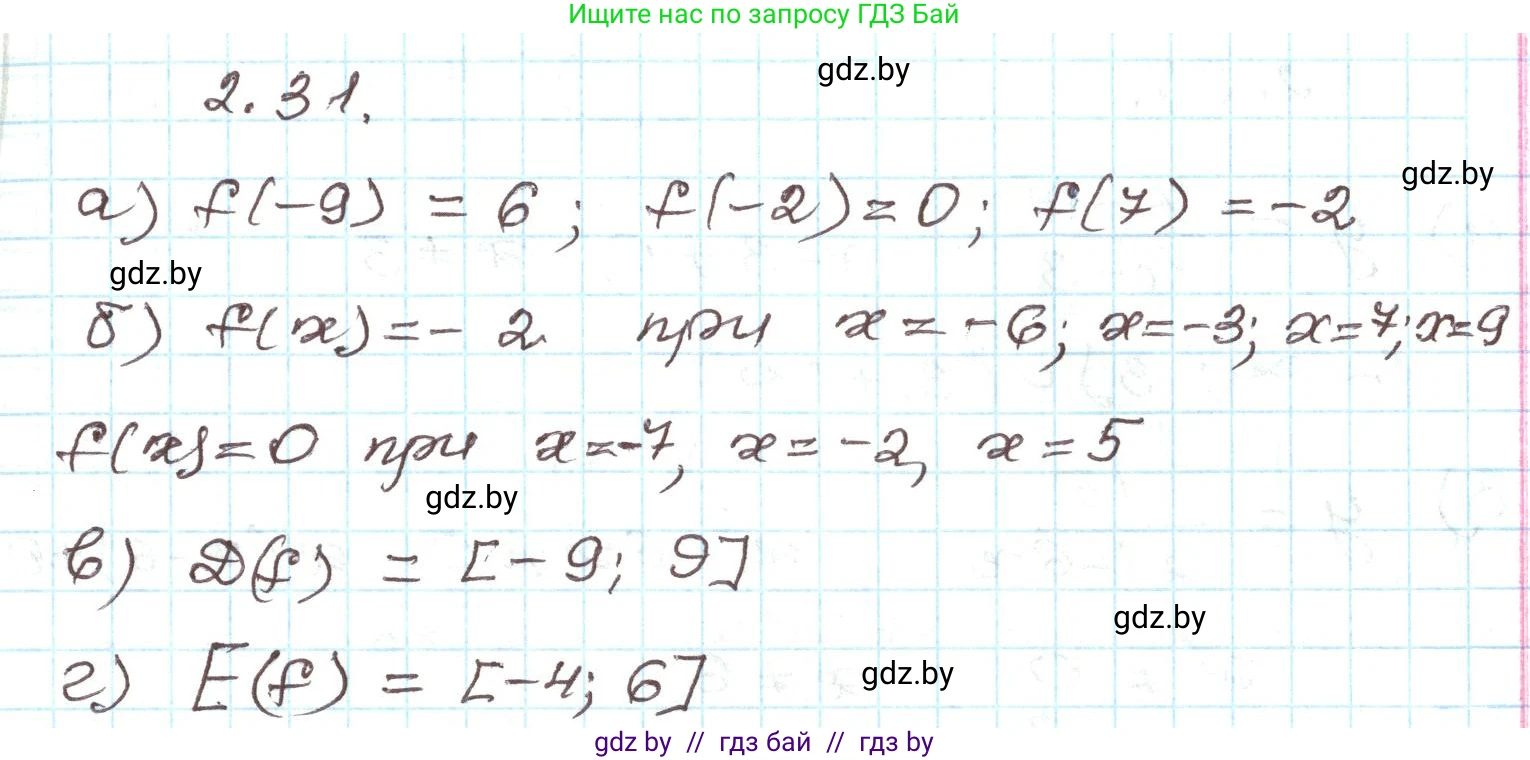 Ищите нас по запросу ГДЗ Бай
gdz.by
2.31.
gdz.by
а) f(-9) = 6; f(-2)=0; f(7) = -2
gdz.by
б) f(x)=- 2 при x = -6; x=-3; x=7; x=9
f(x)=0 при x=-7, x=-2, x=5
gdz.by
в) D(f) = [-9; 9]
gdz.by
г) E(f) = [-4; 6]
gdz.by
gdz by // гдз бай // гдз by